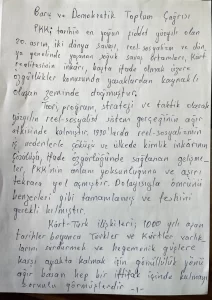 Barış ve Demokratik Toplum Çağrısı
PKK; tarihin en yoğun şiddet yüzyılı olan
20. asrın, iki dünya savaşı, reel-sosyalizm ve dün-
ya genelinde yaşanan soğuk savaş ortamları, Kürt
realitesinin inkârı, başta ifade olmak üzere
özgürlükler konusunda yasaklardan kaynaklı
oluşan zeminde doğmuştur.
Teori, program, strateji ve taktik olarak
yüzyılın reel-sosyalist sistem gerçeğinin ağır
etkisinde kalmıştır. 1990'larda reel-sosyalizmin
iç nedenlerle çöküşü ve ülkede kimlik inkârının
çözülüşü, ifade özgürlüğünde sağlanan gelişme-
ler, PKK'nin anlam yoksunluğuna ve aşırı
tekrara yol açmıştır. Dolayısıyla ömrünü
benzerleri gibi tamamlamış ve feshini
gerekli kılmıştır.
Kürt-Türk ilişkileri; 1000 yılı aşan
tarihler boyunca Türkler ve Kürtler varlık-
larını sürdürmek ve hegemonik güçlere
karşı ayakta kalmak için gönüllülük yönü
ağır basan hep bir ittifak içinde kalmayı
zorunlu görmüşlerdir.
-1-